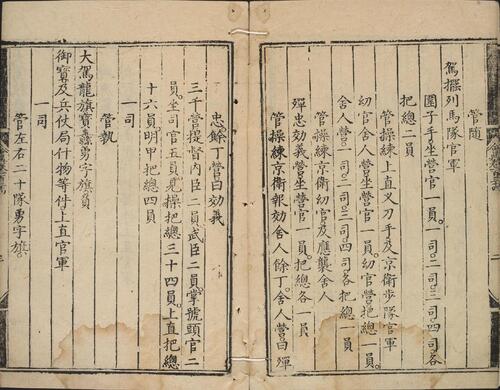 管隨
駕擺列馬隊官軍
圍子手坐營官一員。一司。二司。三司。四司各
把總二員
管操練上直叉刀手及京衛步隊官軍
幼官舍人營坐營官一員。幼官營把總一員。
舍人營。一司。二司。三司。四司各把總一員
管操練京衛幼官及應襲舍人
殫忠効義營坐營官一員。把總各一員
管操練京衛報効舍人餘丁。舍人營曰殫
忠。餘丁營曰効義
三千營提督內臣二員。武臣二員。掌號頭官二
員。坐司官五員。見操把總三十四員。上直把總
十六員。明甲把總四員
一司
管執
大駕龍旗寶纛勇字旗負
御寶及兵仗局什物等件上直官軍
一司
管左右二十隊勇字旗。